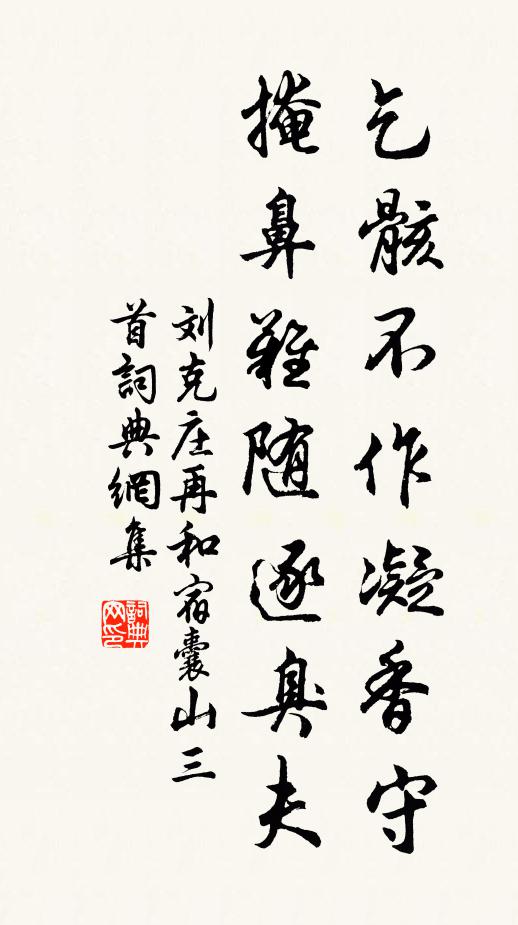 乞骸不作凝香守
掩鼻難随逐臭夫
刘克庄再和宿囊山三
首詞典網集
詞典
网印